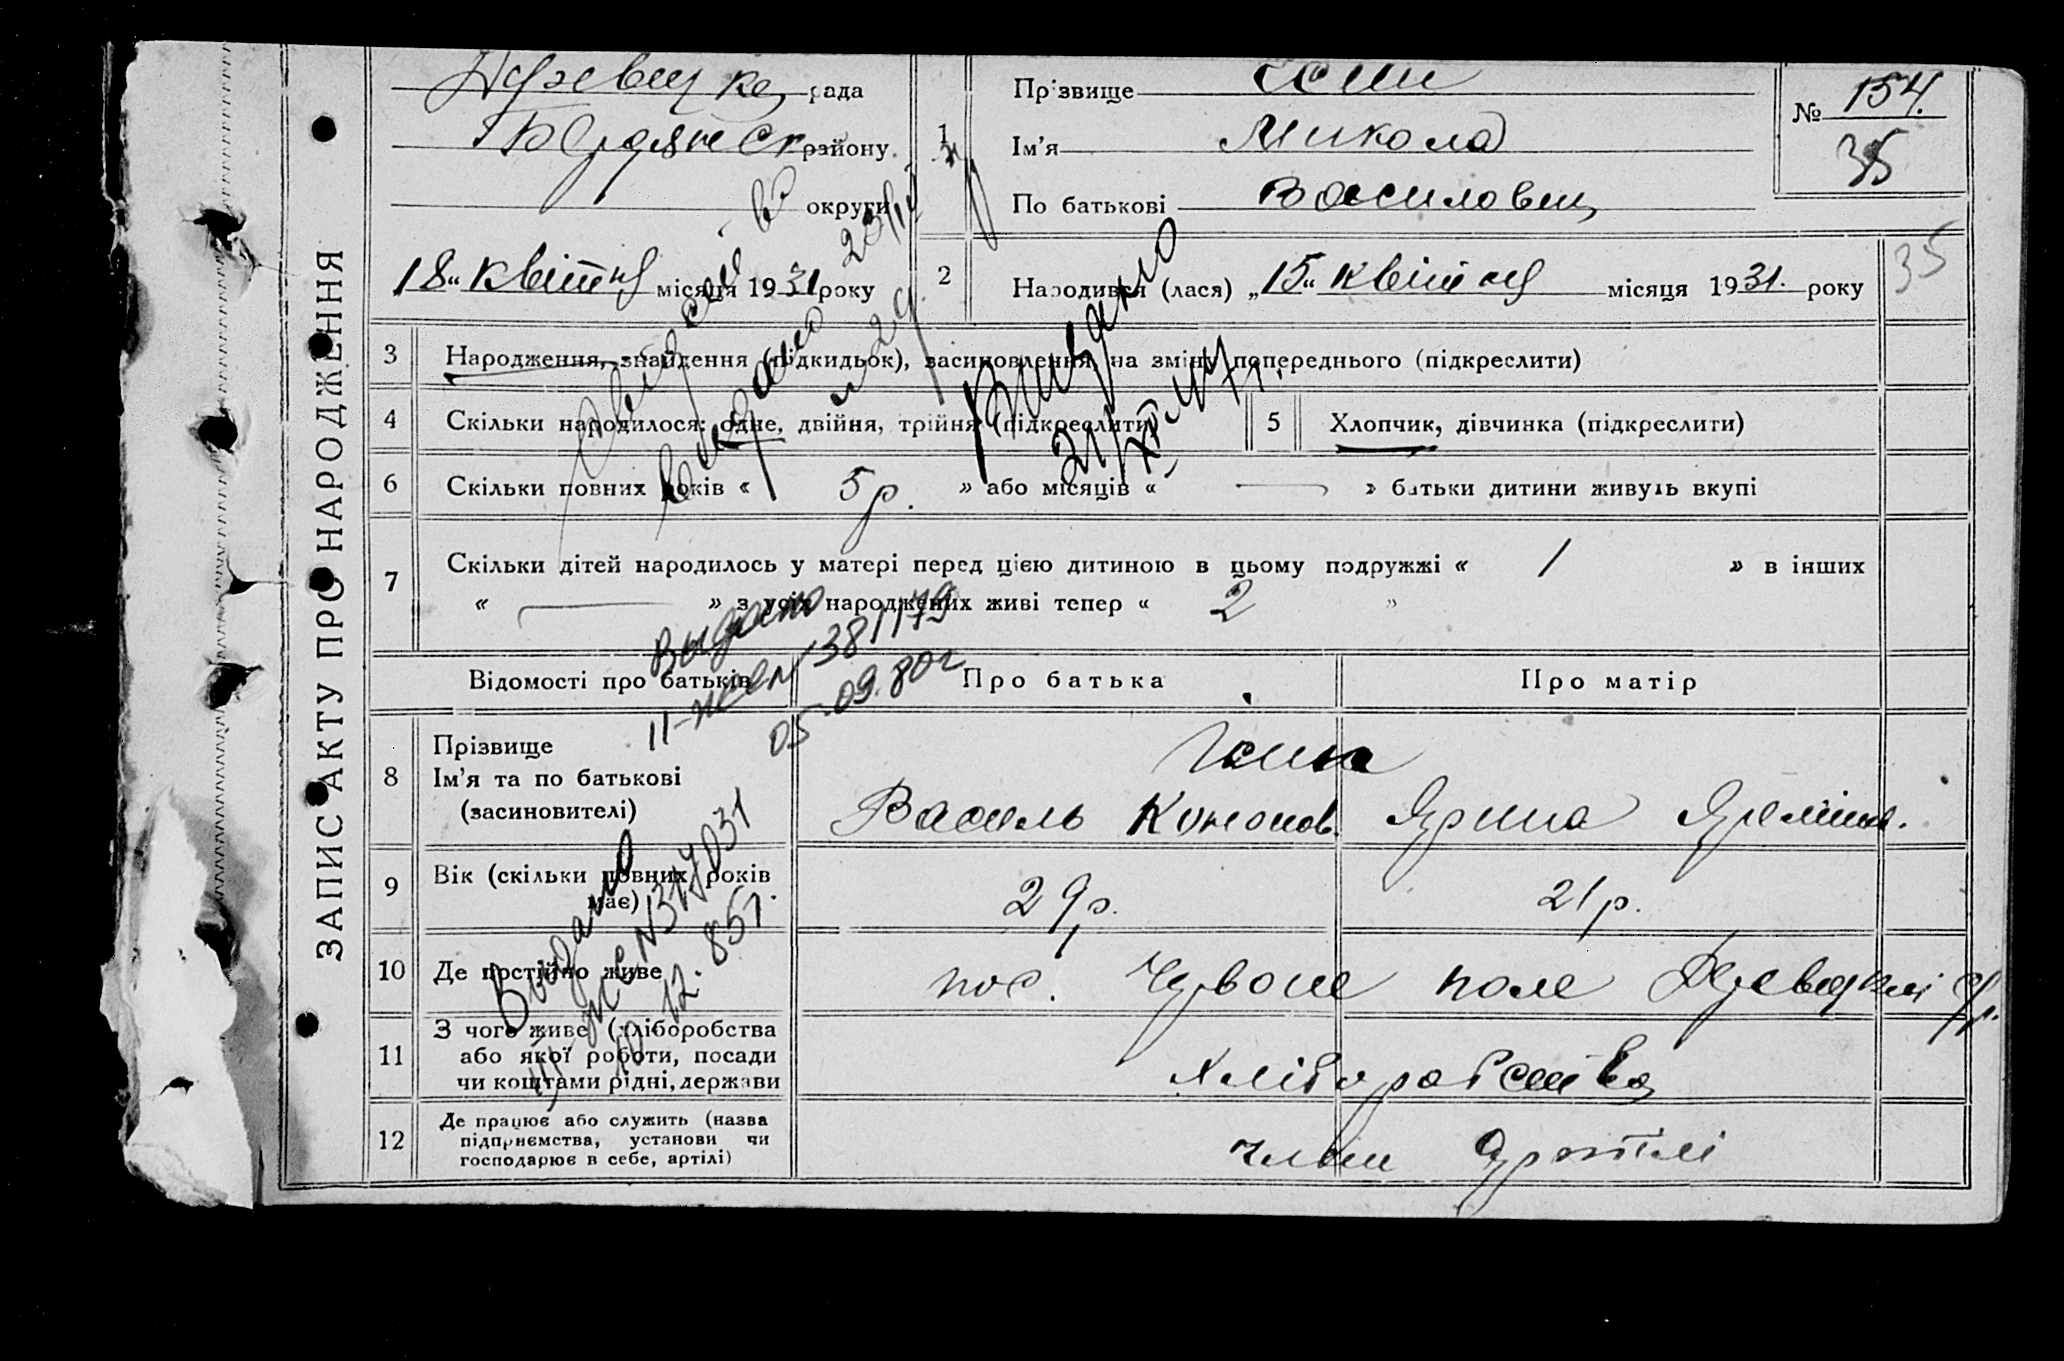 ЗАПИС АКТУ ПРО НАРОДЖЕННЯ
рада
Бердянськ району
округи
18 " квітня місяця 1931 року
1
Прізвище
Ім'я Микола
По батькові Василович
№ 154.
35
2 Народився (лася) „ 15 " квітня місяця 1931. року
35
3 Народження, знайдення (підкидьок), засиновлення, на зміну попереднього (підкреслити)
4 Скільки народилося: одне, двійня, трійня (підкреслити)
5 Хлопчик, дівчинка (підкреслити)
6 Скільки повних років « 5 р. » або місяців « — » батьки дитини живуть вкупі
7 Скільки дітей народилось у матері перед цією дитиною в цьому подружжі « 1 » в інших
« — » з усіх народжених живі тепер « 2 »
Видано
Выдано
05.09.80г
Відомості про батьків
Про батька
Про матір
8 Прізвище
Ім'я та по батькові
(засиновителі)
Василь Кононов.
Ярина
9 Вік (скільки повних років має)
29 р.
21 р.
Выдано
10.12.85г.
10 Де постійно живе
пос. Червоне поле
11 З чого живе (хліборобства
або якої роботи, посади
чи коштами рідні, держави
Хліборобства
12 Де працює або служить (назва
підприємства, установи чи
господарює в себе, артілі)
член артілі